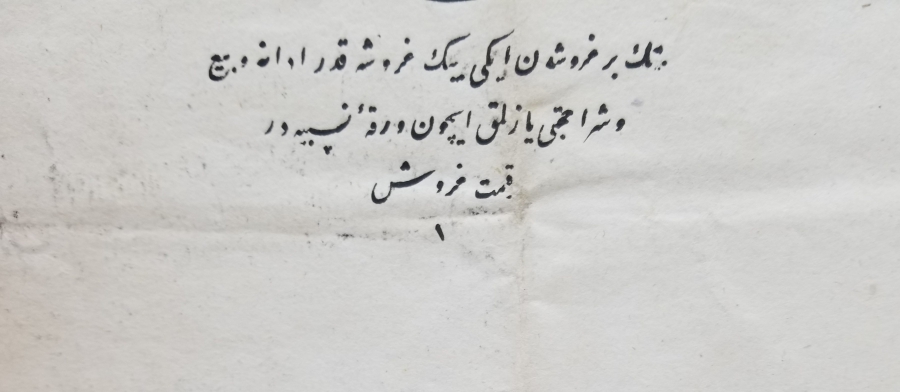 بیك بر غروشدن ایکی بیك غروشه قدر ادانه و بیع
و شرا حجتی یازلمق ایچون ورقهٔ نسبیه در
قیمت غروش
١